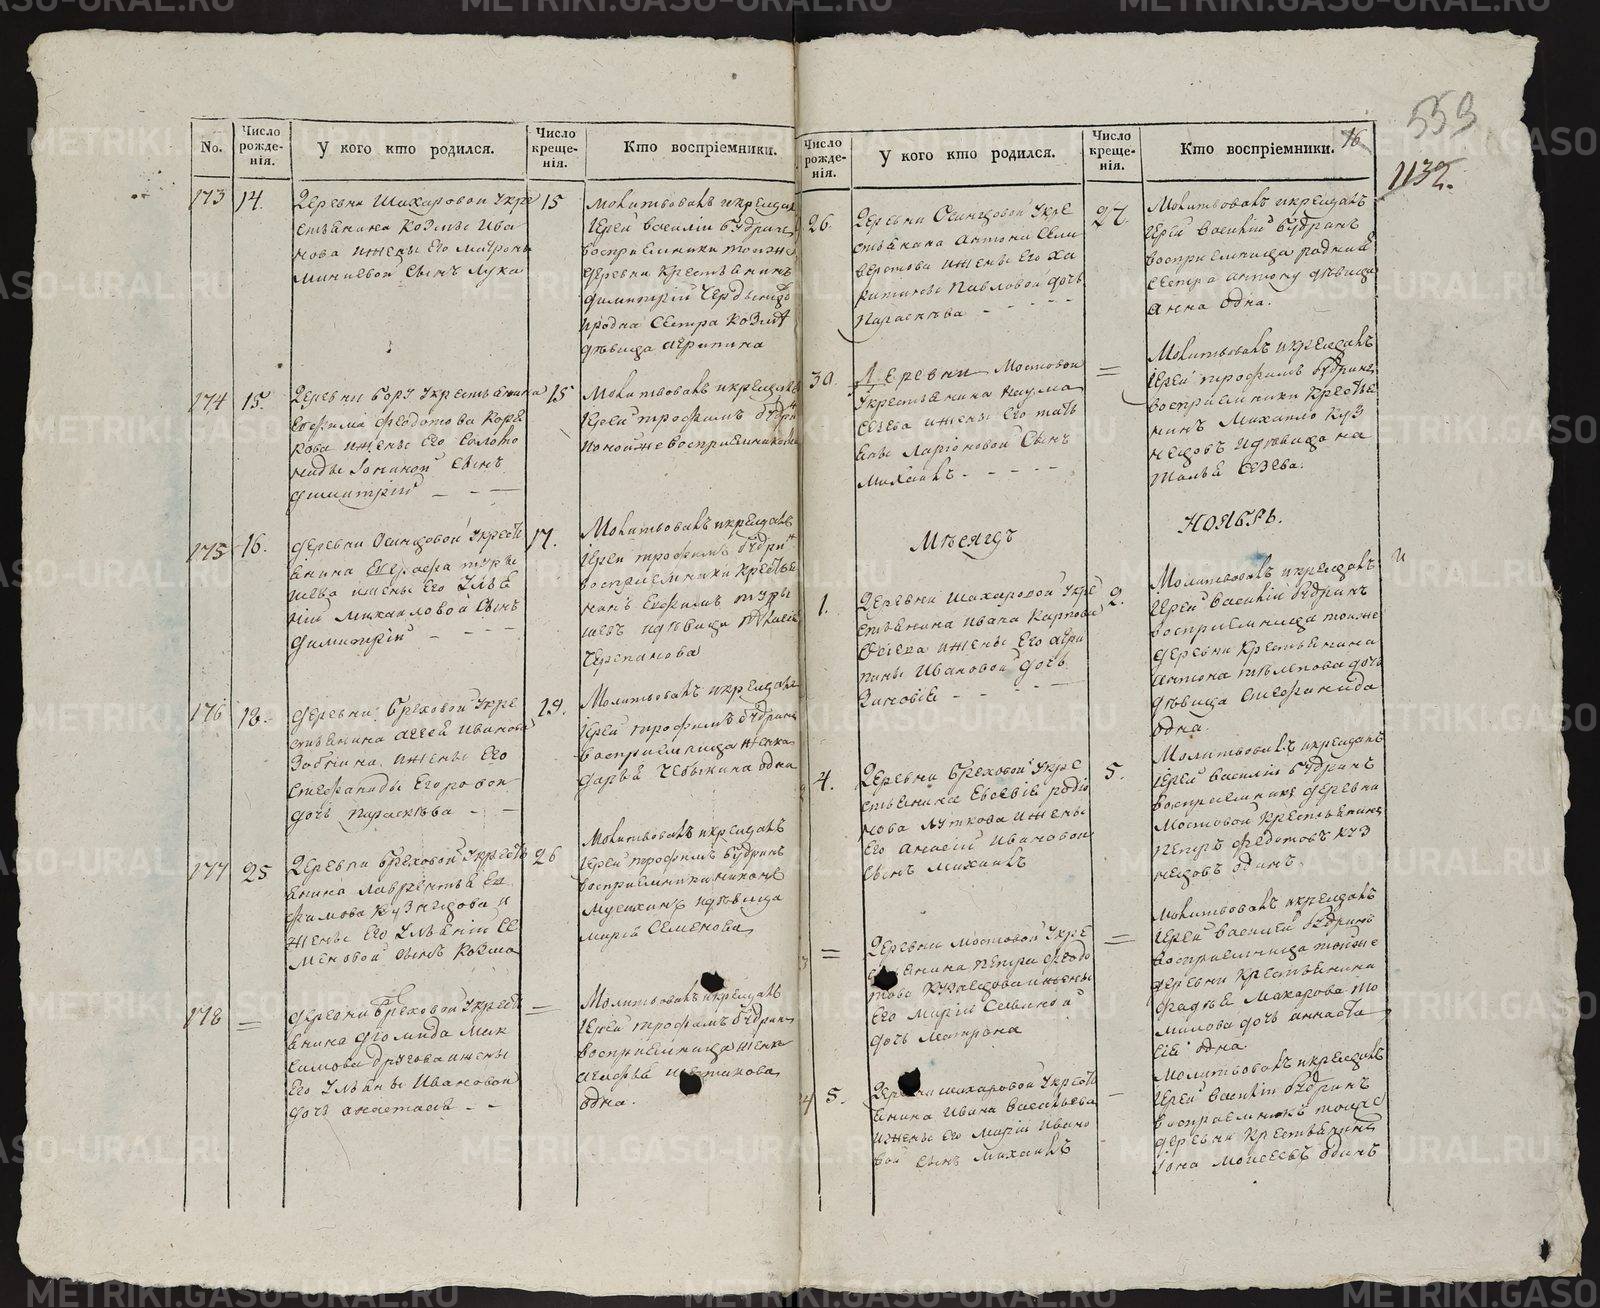 No.
Число рожде-нія.
У кого кто родился.
Число креще-нія.
Кто воспріемники.
173
14.
Деревни Шахаровой укре
стьянина Козмы Ива
нова ижены его Матроны
Миниевой сынъ Лука
15
Молитвовалъ икрещалъ
Іерей Василій Будринъ
восприемники тояже
деревни крестьянинъ
Димитрій
ироdна сестра Козмы
дѣвица Агрипина
174
15.
Деревни Бору укрестьянина
Ефима Федотова Коре
кова ижены его Соломо
ниды Іониной сынъ
Димитрій
15
Молитвовалъ икрещалъ
Іерей Трофимъ Будринъ
онойже восприемникомъ
175
16.
Деревни Осинцовой укресть
янина Евграфа Туры
шева ижены его Улья
ніи Михайловой сынъ
Димитрій
17.
Молитвовалъ икрещалъ
Іерей Трофимъ Будринъ
восприемники крестья
нинъ Ефимъ Туры
шевъ идѣвица
Черепанова
176
18.
Деревни Бреховой укре
стьянина Агѣя Иванова
Зобнина ижены его
Стефаниды Егоровой
дочь Параскѣва
19.
Молитвовалъ икрещалъ
Іерей Трофимъ Будринъ
восприемница женка
Дарья Чебыкина одна
177
25
Деревни Бреховой укресть
янина Лаврентья Еф
имова Кузнецова и
жены его Ульяніи Се
меновой сынъ Козма
26
Молитвовалъ икрещалъ
Іерей Трофимъ Будринъ
восприемники Никонъ
Мусихинъ идѣвица
Марія Семенова
178
=
Деревни Бреховой укресть
янина Диомида Мак
симова Другова ижены
его Ульяны Ивановой
дочь Анастасія
=
Молитвовалъ икрещалъ
Іерей Трофимъ Будринъ
восприемница женка
Агафья
одна.
Число рожде-нія.
У кого кто родился.
Число креще-нія.
Кто воспріемники.
16
559
1132.
26.
Деревни Осинцовой укре
стьянина Антона Сели
верстова ижены его Ха
ритины Павловой дочь
Параскѣва
27.
Молитвовалъ икрещалъ
Іерей Василій Будринъ
восприемница родная
сестра Антону дѣвица
Анна одна.
30.
Деревни Мостовой
укрестьянина Наума
Сезева ижены его Тать
яны Ларіоновой сынъ
Михаилъ
=
Молитвовалъ икрещалъ
Іерей Трофимъ Будринъ
восприемники крестья
нинъ Михайло Куз
нецовъ идѣвица На
талья Сезева.
Мѣсяцъ
НОЯБРЬ.
1.
Деревни Шахаровой укре
стьянина Ивана Карпова
ижены его Агри
пины Ивановой дочь
Зиновія
2.
Молитвовалъ икрещалъ
Іерей Василій Будринъ
восприемница тояже
деревни крестьянина
Антона дочь
дѣвица Стефанида
одна.
4.
Деревни Бреховой укре
стьянина Евсевія Родіо
нова Луткова ижены
его Анасіи Ивановой
сынъ Михаилъ
5.
Молитвовалъ икрещалъ
Іерей Василій Будринъ
восприемникъ деревни
Мостовой крестьянинъ
Петръ Федотовъ Куз
нецовъ одинъ.
=
Деревни Мостовой укре
стьянина Петра Федо
това Кузнецова ижены
его Маріи
дочь Матрона
=
Молитвовалъ икрещалъ
Іерей Василей Будринъ
восприемница тояже
деревни крестьянина
Фадѣя Макарова То
милова дочь Анаста
сія одна.
5.
Деревни Шахаровой укресть
янина Ивана Васильева
ижены его Маріи Ивано
вой сынъ Михаилъ
Молитвовалъ икрещалъ
Іерей Василій Будринъ
восприемникъ тояже
деревни крестьянинъ
Іона Моисеевъ одинъ
METRIKI.GASO-URAL.RU